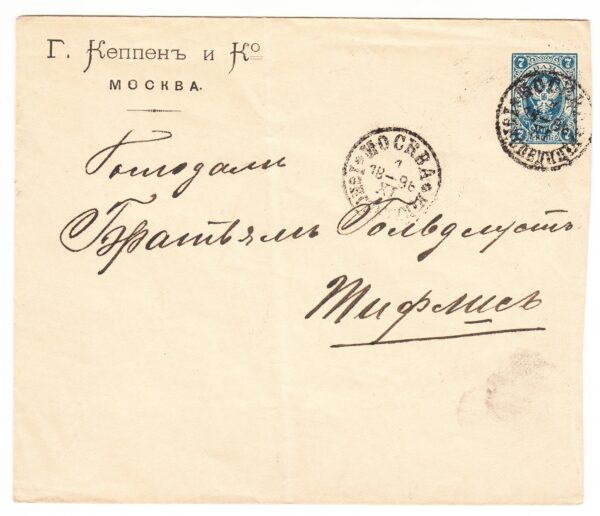 Г. Кеппенъ и Ко
МОСКВА.
7 7
МОСКВА
1
18–96
XI
Господамъ
Братьямъ Гольдлустъ
Тифлисъ